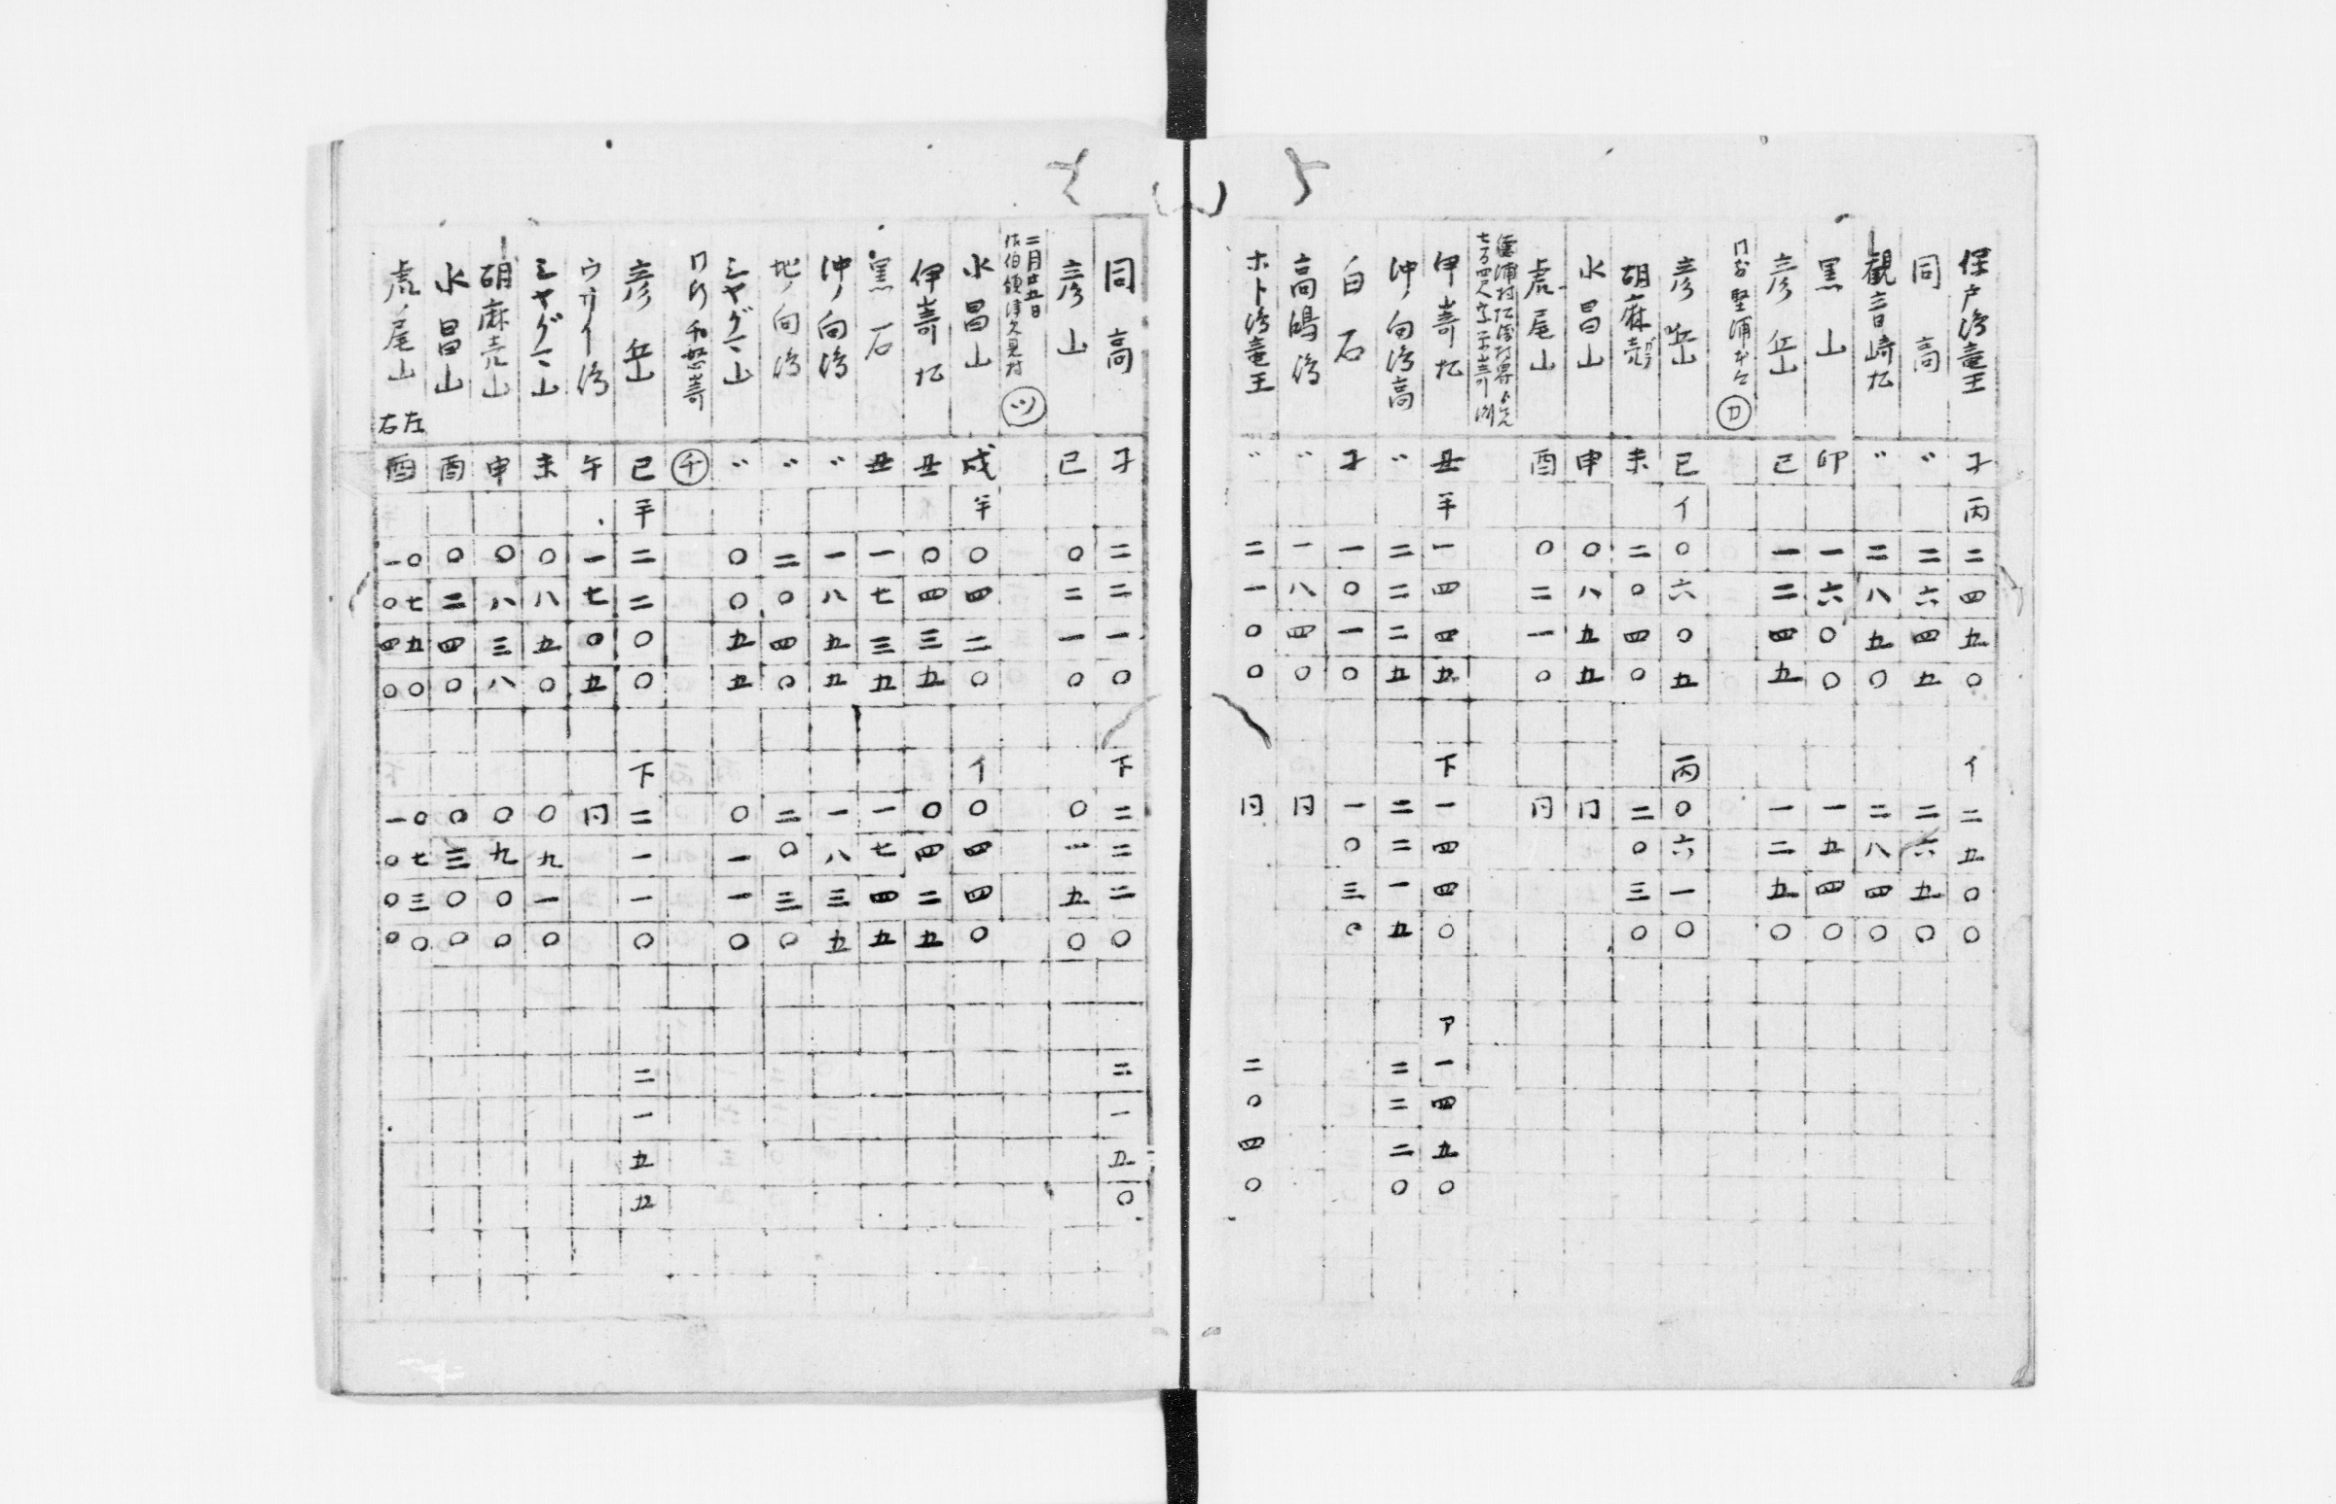 保戸冶竜王 子 丙 二四五〇 イ 二五〇〇
同高 〃 二六四五 二六五〇
観音崎九 〃 二八五〇 二八四〇
黒山 卯 一六〇〇 一五四〇
彦岳山 己 一二四五 一二五〇
堅浦 カ
彦岳山 巳 イ 〇六〇五 丙 〇六一〇
胡麻売 未 二〇四〇 二〇三〇
水昌山 申 〇八五五 同
虎尾山 酉 〇二一〇 同
伊嵜九 丑 半 一四四五 下 一四四〇 ア 一四五〇
沖ノ向冶高 〃 二二二五 二二一五 二二二〇
白石 子 一〇一〇 一〇三〇
高嶋冶 〃 一八四〇 同
ホト冶竜王 〃 二一〇〇 同 二〇四〇
同高 子 二二一〇 下 二二二〇 二一五〇
彦山 巳 〇二一〇 〇一五〇
二月廿五日
佐伯領津久見村 ツ
水昌山 戌 半 〇四二〇 イ 〇四四〇
伊嵜九 丑 〇四三五 〇四二五
黒石 丑 一七三五 一七四五
沖ノ向冶 〃 一八五五 一八三五
地ノ向冶 〃 二〇四〇 二〇三〇
ミヤグニ山 〃 〇〇五五 〇一一〇
チ
彦岳山 巳 半 二二〇〇 下 二一一〇 二一五五
午 一七〇五 同
ミヤグニ山 未 〇八五〇 〇九一〇
胡麻売山 申 〇八三八 〇九〇〇
水昌山 酉 〇二四〇 〇三〇〇
虎ノ尾山 左 酉 〇七五〇 〇七三〇
右 一〇四〇 一〇〇〇